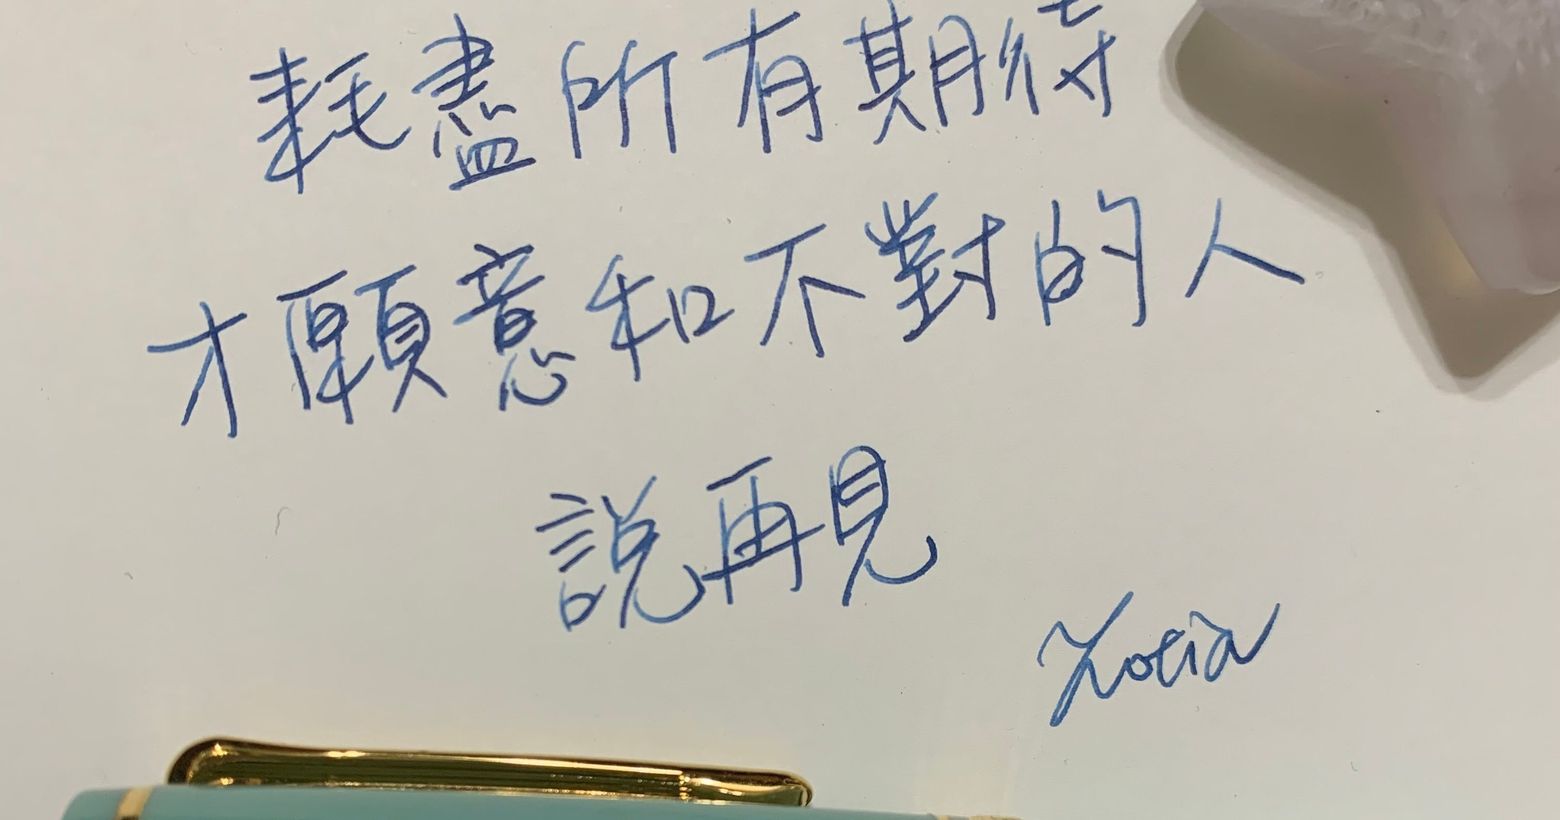 耗盡所有期待
才願意和不對的人
說再見